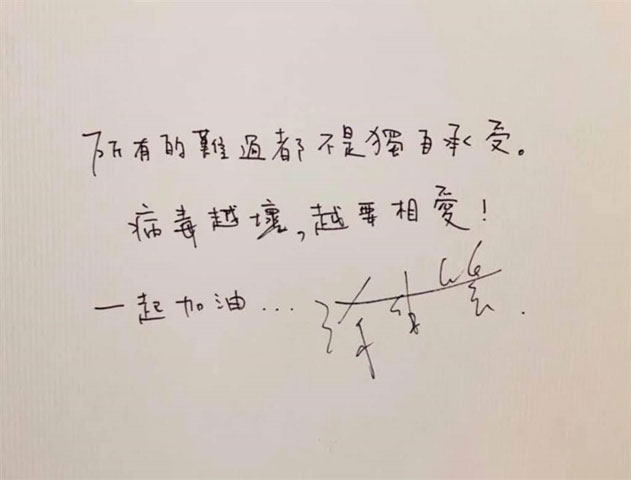 所有的難過都不是獨自承受。
病毒越壞,越要相愛!
一起加油...